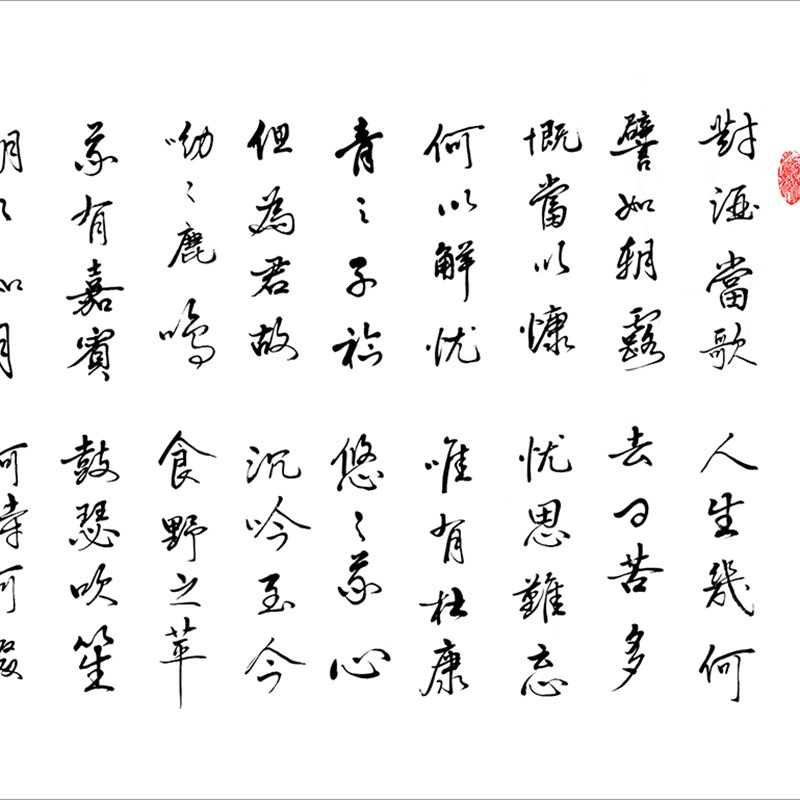 對酒當歌 人生幾何
譬如朝露 去日苦多
慨當以慷 忧思難忘
何以解忧 唯有杜康
青〻子衿 悠〻我心
但為君故 沉吟至今
呦〻鹿鳴 食野之苹
我有嘉賓 鼓瑟吹笙